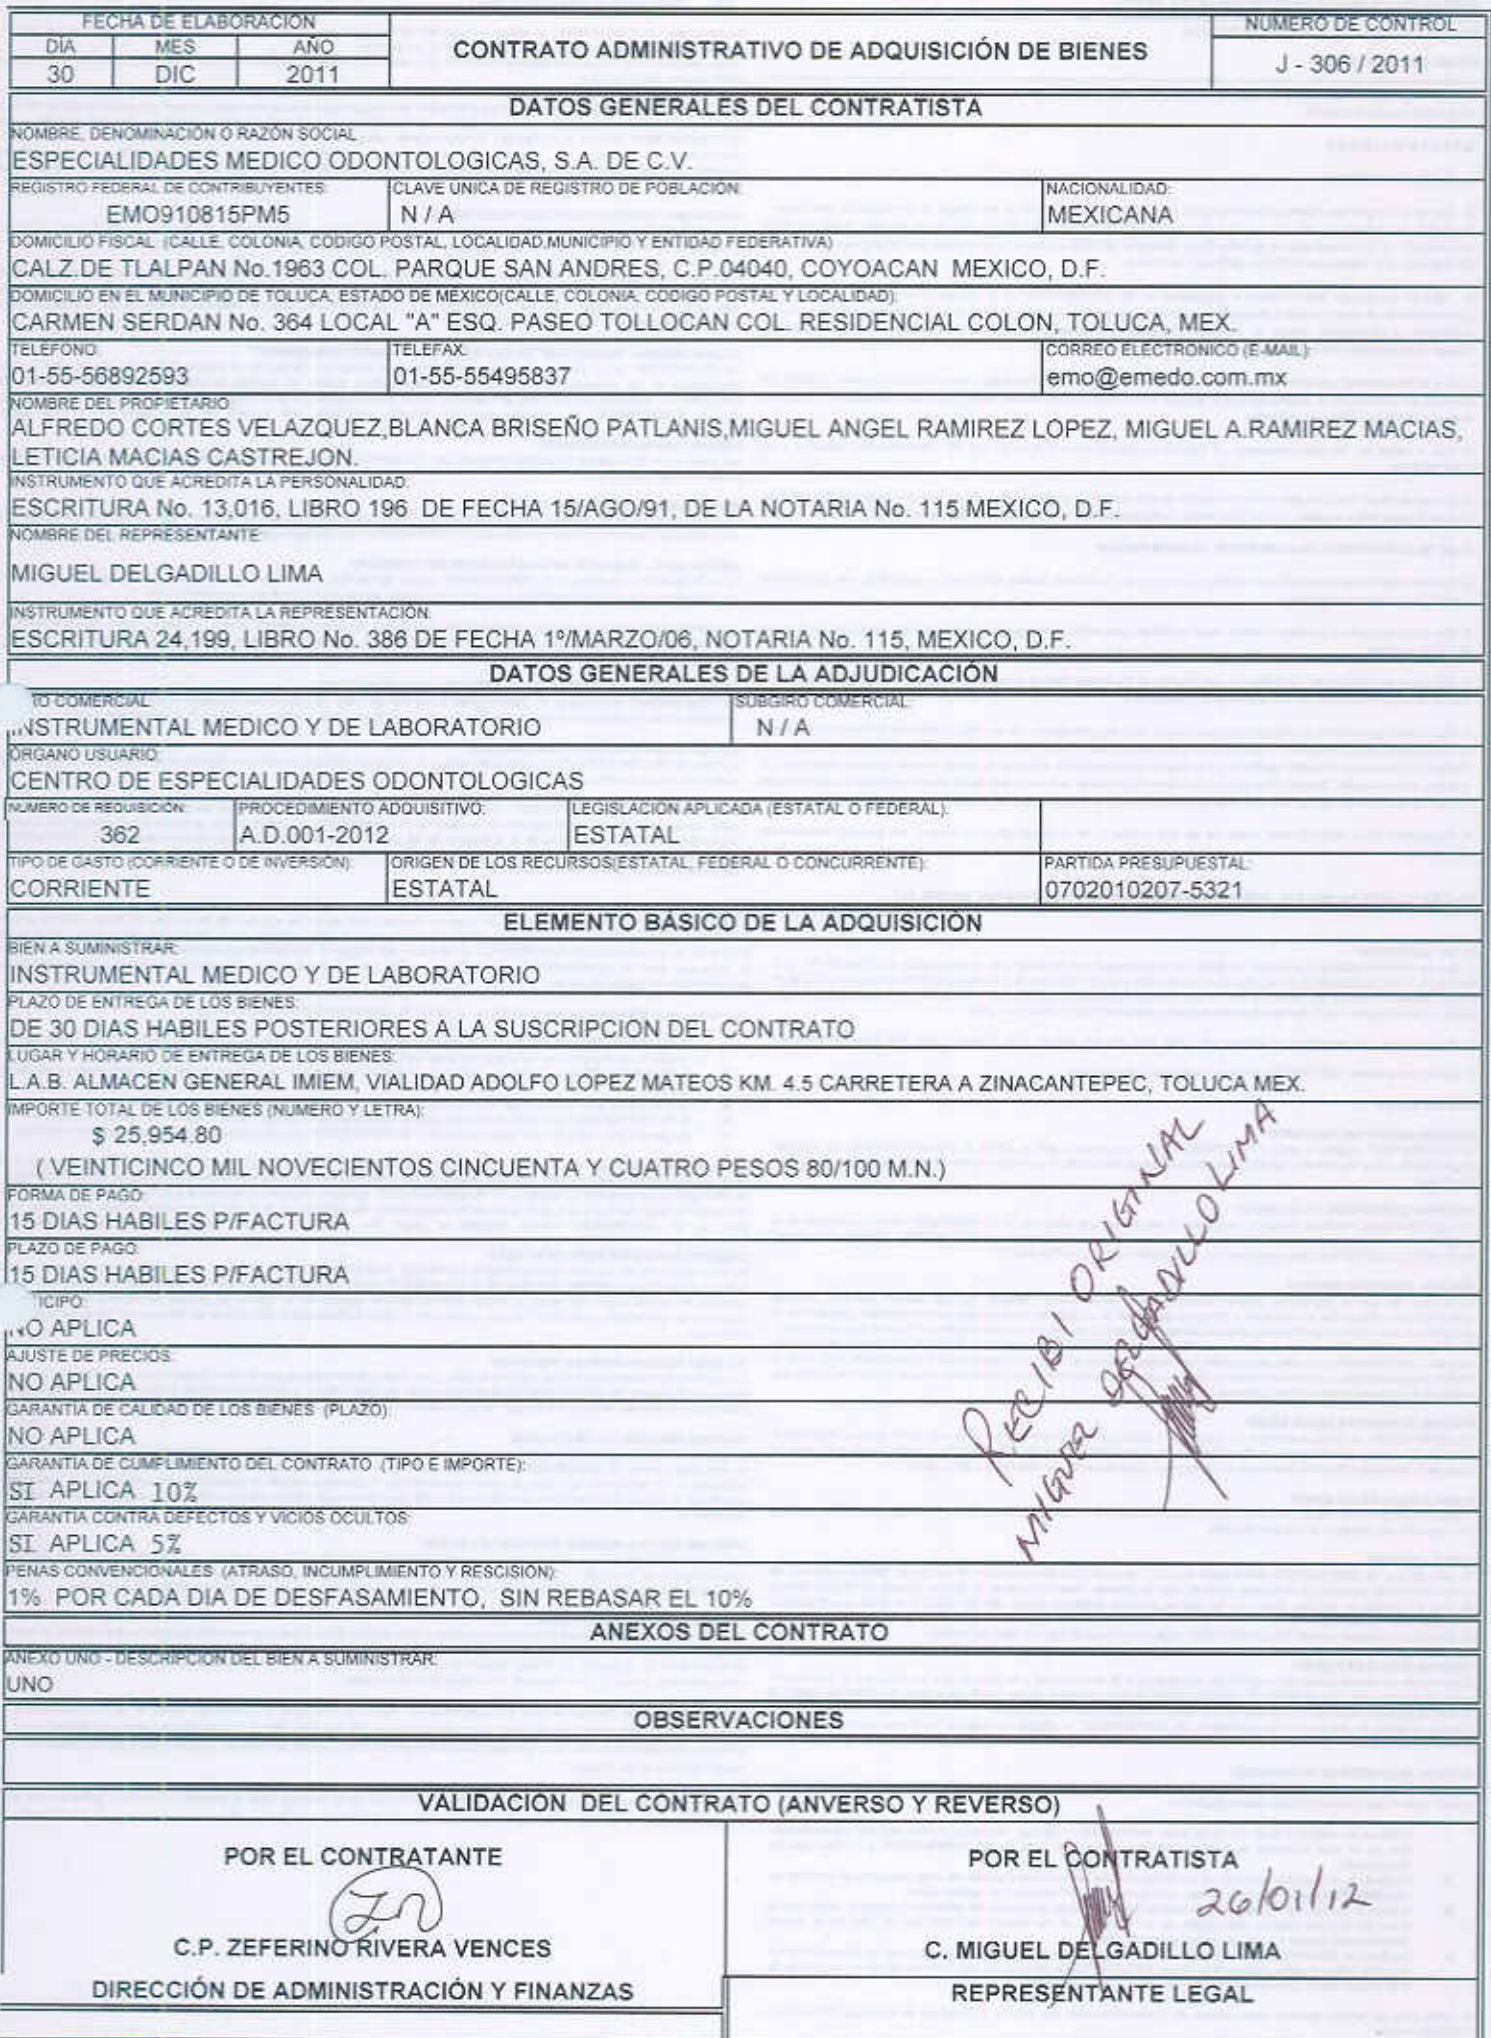 FECHA DE ELABORACIÓN
DÍA MES AÑO
30 DIC 2011
CONTRATO ADMINISTRATIVO DE ADQUISICIÓN DE BIENES
NÚMERO DE CONTROL
J - 306 / 2011
DATOS GENERALES DEL CONTRATISTA
NOMBRE, DENOMINACIÓN O RAZÓN SOCIAL
ESPECIALIDADES MEDICO ODONTOLOGICAS, S.A. DE C.V.
REGISTRO FEDERAL DE CONTRIBUYENTES: CLAVE UNICA DE REGISTRO DE POBLACIÓN: NACIONALIDAD:
EMO910815PM5 N / A MEXICANA
DOMICILIO FISCAL (CALLE, COLONIA, CODIGO POSTAL, LOCALIDAD,MUNICIPIO Y ENTIDAD FEDERATIVA)
CALZ.DE TLALPAN No.1963 COL. PARQUE SAN ANDRES, C.P.04040, COYOACAN MEXICO, D.F.
DOMICILIO EN EL MUNICIPIO DE TOLUCA, ESTADO DE MEXICO(CALLE, COLONIA, CODIGO POSTAL Y LOCALIDAD):
CARMEN SERDAN No. 364 LOCAL "A" ESQ. PASEO TOLLOCAN COL. RESIDENCIAL COLON, TOLUCA, MEX.
TELÉFONO: TELEFAX: CORREO ELECTRONICO (E-MAIL):
01-55-56892593 01-55-55495837 emo@emedo.com.mx
NOMBRE DEL PROPIETARIO:
ALFREDO CORTES VELAZQUEZ,BLANCA BRISEÑO PATLANIS,MIGUEL ANGEL RAMIREZ LOPEZ, MIGUEL A.RAMIREZ MACIAS,
LETICIA MACIAS CASTREJON.
INSTRUMENTO QUE ACREDITA LA PERSONALIDAD:
ESCRITURA No. 13,016, LIBRO 196 DE FECHA 15/AGO/91, DE LA NOTARIA No. 115 MEXICO, D.F.
NOMBRE DEL REPRESENTANTE:
MIGUEL DELGADILLO LIMA
INSTRUMENTO QUE ACREDITA LA REPRESENTACIÓN:
ESCRITURA 24,199, LIBRO No. 386 DE FECHA 1º/MARZO/06, NOTARIA No. 115, MEXICO, D.F.
DATOS GENERALES DE LA ADJUDICACIÓN
COMERCIAL SUBGIRO COMERCIAL:
INSTRUMENTAL MEDICO Y DE LABORATORIO N / A
ÓRGANO USUARIO:
CENTRO DE ESPECIALIDADES ODONTOLOGICAS
NÚMERO DE REQUISICIÓN: PROCEDIMIENTO ADQUISITIVO: LEGISLACIÓN APLICADA (ESTATAL O FEDERAL):
362 A.D.001-2012 ESTATAL
TIPO DE GASTO (CORRIENTE O DE INVERSIÓN): ORIGEN DE LOS RECURSOS(ESTATAL, FEDERAL O CONCURRENTE): PARTIDA PRESUPUESTAL:
CORRIENTE ESTATAL 0702010207-5321
ELEMENTO BÁSICO DE LA ADQUISICIÓN
BIEN A SUMINISTRAR:
INSTRUMENTAL MEDICO Y DE LABORATORIO
PLAZO DE ENTREGA DE LOS BIENES:
DE 30 DIAS HABILES POSTERIORES A LA SUSCRIPCION DEL CONTRATO
LUGAR Y HORARIO DE ENTREGA DE LOS BIENES:
L.A.B. ALMACEN GENERAL IMIEM, VIALIDAD ADOLFO LOPEZ MATEOS KM. 4.5 CARRETERA A ZINACANTEPEC, TOLUCA MEX.
IMPORTE TOTAL DE LOS BIENES (NUMERO Y LETRA):
$ 25,954.80
( VEINTICINCO MIL NOVECIENTOS CINCUENTA Y CUATRO PESOS 80/100 M.N.)
FORMA DE PAGO:
15 DIAS HABILES P/FACTURA
PLAZO DE PAGO:
15 DIAS HABILES P/FACTURA
TICIPO:
NO APLICA
AJUSTE DE PRECIOS:
NO APLICA
GARANTIA DE CALIDAD DE LOS BIENES (PLAZO):
NO APLICA
GARANTIA DE CUMPLIMIENTO DEL CONTRATO (TIPO E IMPORTE):
SI APLICA 10%
GARANTIA CONTRA DEFECTOS Y VICIOS OCULTOS:
SI APLICA 5%
PENAS CONVENCIONALES (ATRASO, INCUMPLIMIENTO Y RESCISIÓN):
1% POR CADA DIA DE DESFASAMIENTO, SIN REBASAR EL 10%
RECIBI ORIGINAL
MIGUEL DELGADILLO LIMA
ANEXOS DEL CONTRATO
ANEXO UNO - DESCRIPCION DEL BIEN A SUMINISTRAR:
UNO
OBSERVACIONES
VALIDACION DEL CONTRATO (ANVERSO Y REVERSO)
POR EL CONTRATANTE
C.P. ZEFERINO RIVERA VENCES
DIRECCIÓN DE ADMINISTRACIÓN Y FINANZAS
POR EL CONTRATISTA
26/01/12
C. MIGUEL DELGADILLO LIMA
REPRESENTANTE LEGAL